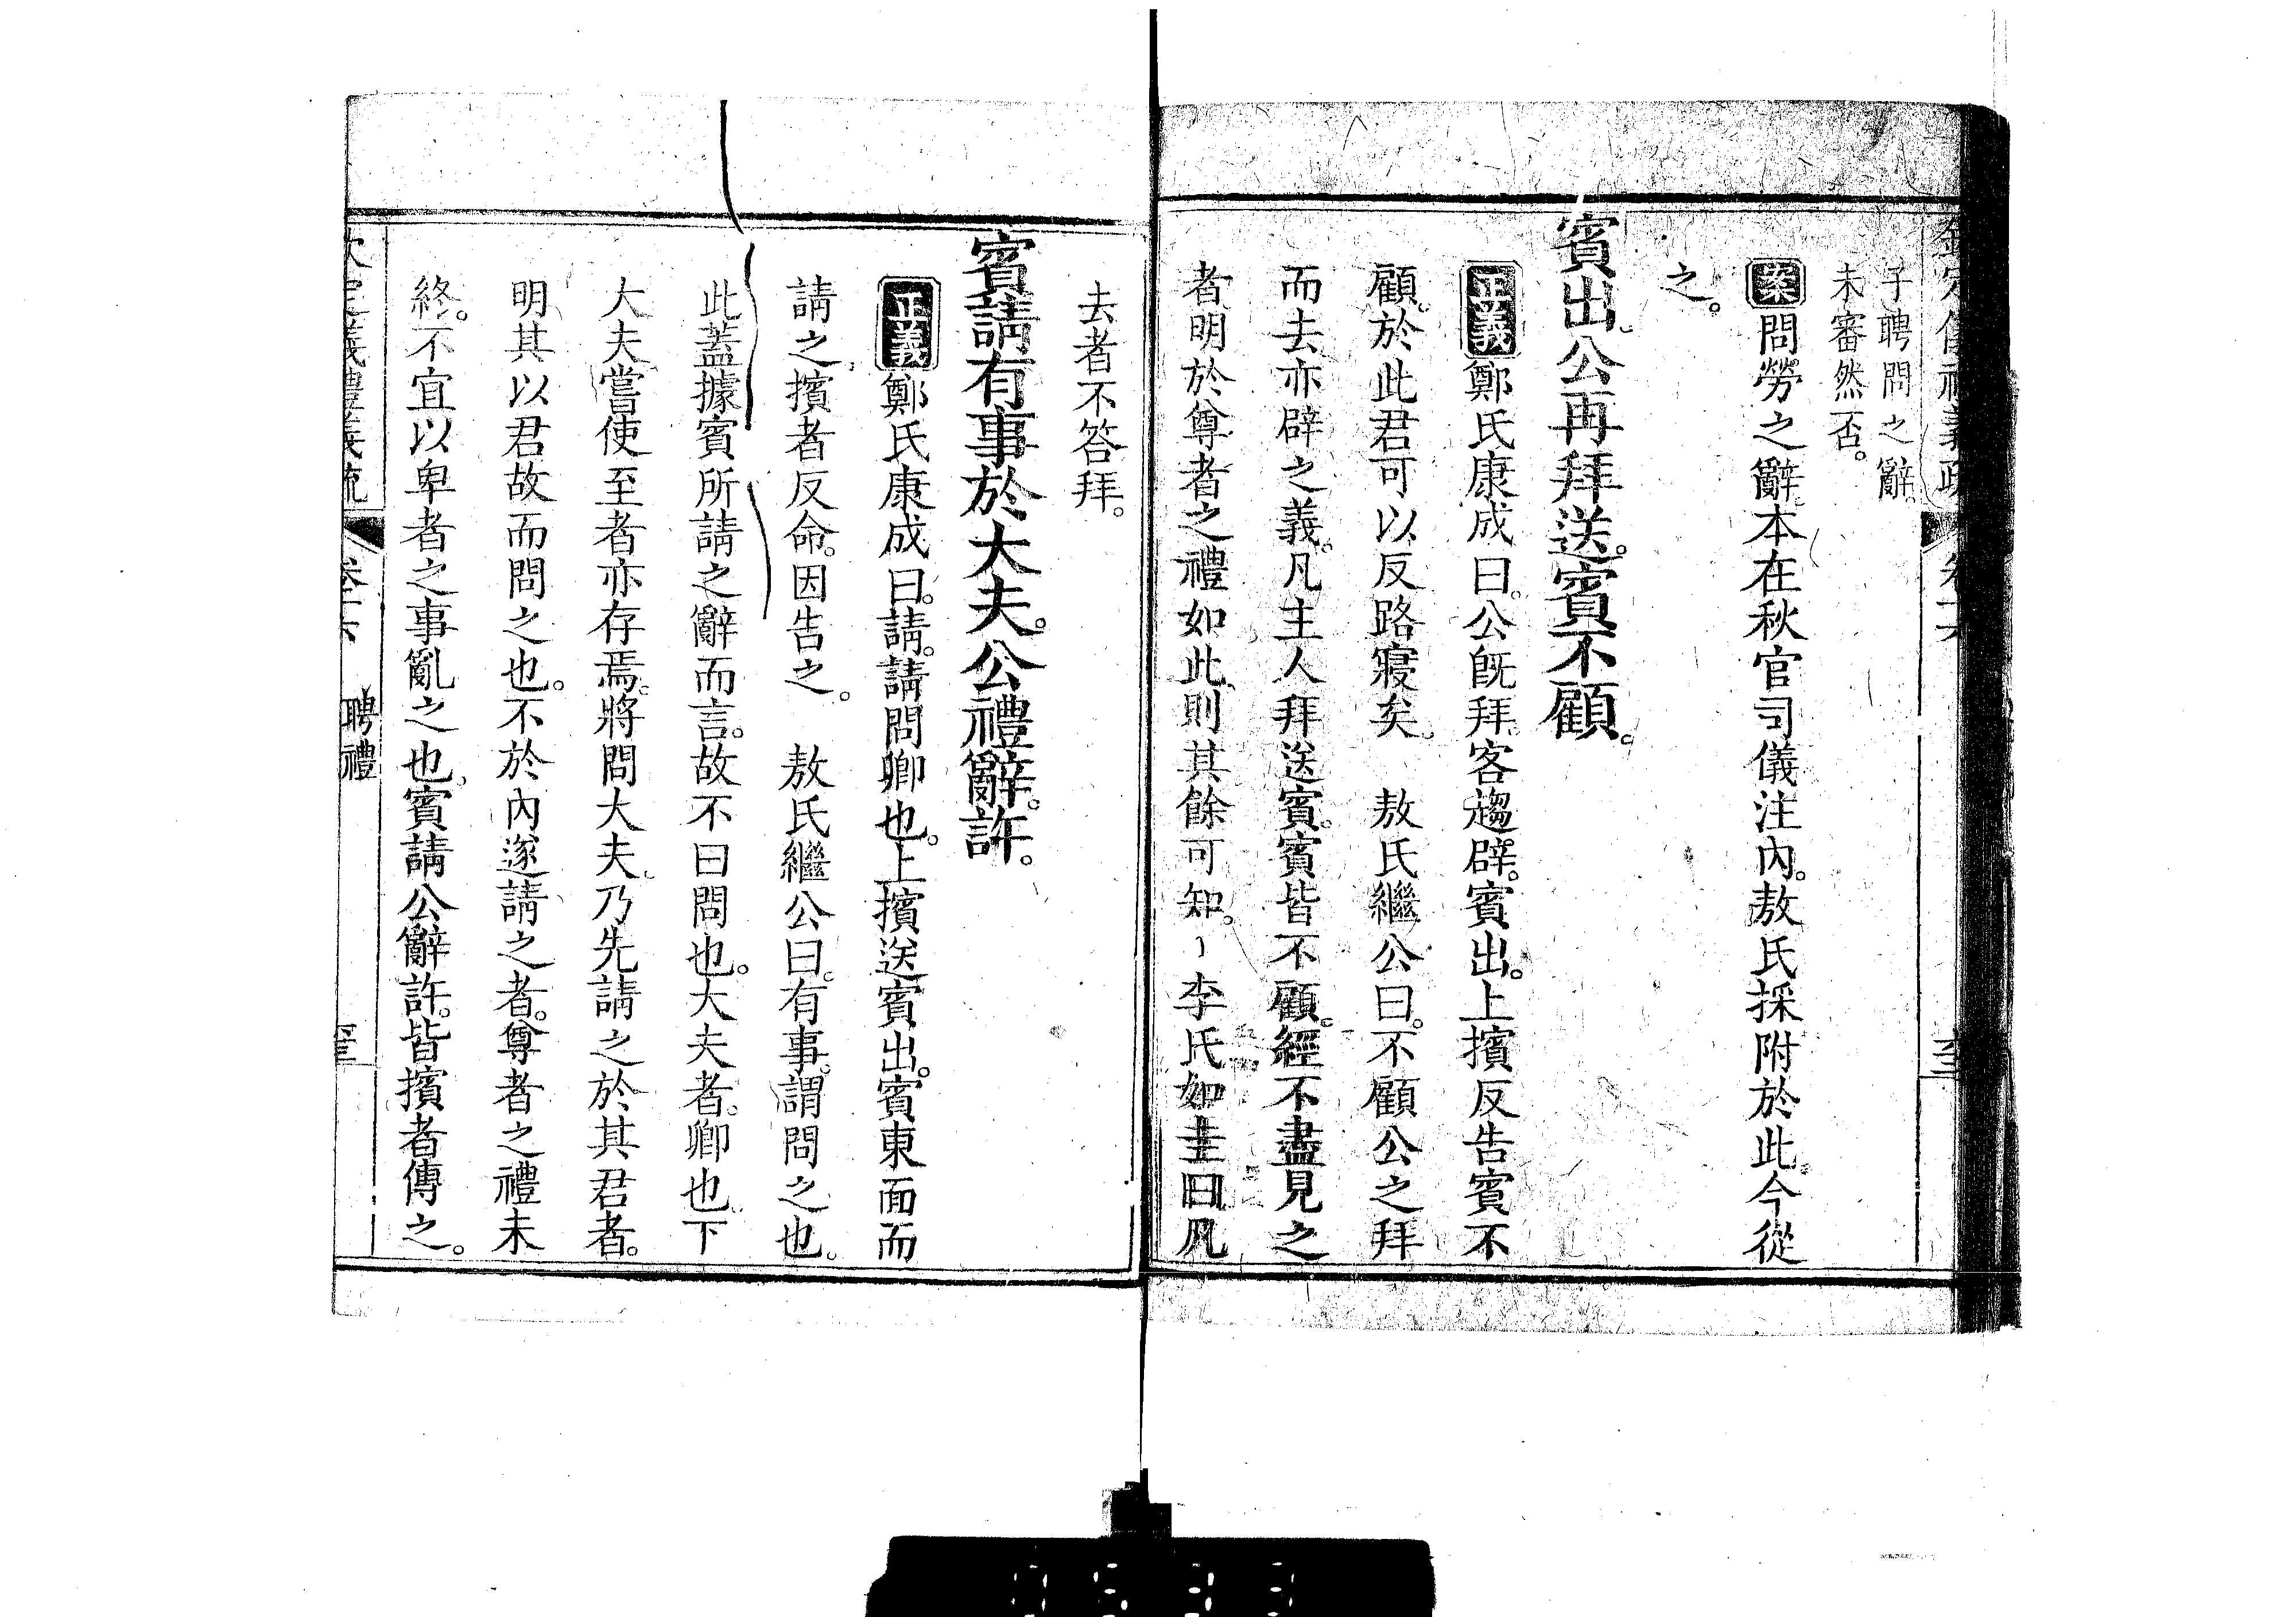 欽定儀禮義疏 卷十六
子聘問之辭
未審然否。
案問勞之辭本在秋官司儀注内。敖氏採附於此今從
之。
賓出公再拜送。賓不顧。
正義鄭氏康成曰。公旣拜客趨辟。賓出。上擯反告賓不
顧。於此君可以反路寢矣 敖氏繼公曰。不顧公之拜
而去亦辟之義。凡主人拜送賓。賓皆不顧。經不盡見之
者明於尊者之禮如此則其餘可知。李氏如圭曰凡
去者不答拜。
賓請有事於大夫。公禮辭。許。
正義鄭氏康成曰。請。請問卿也。上擯送賓出。賓東面而
請之擯者反命。因告之。 敖氏繼公曰。有事。謂問之也。
此蓋據賓所請之辭而言。故不曰問也。大夫者。卿也下
大夫嘗使至者亦存焉。將問大夫乃先請之於其君者。
明其以君故而問之也。不於内遂請之者。尊者之禮未
終。不宜以卑者之事亂之也。賓請公辭許。皆擯者傳之。
欽定儀禮義疏 卷十六 聘禮